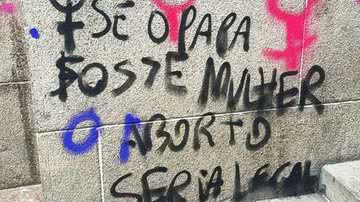 SE O PAPA
FOSTE MULHER
O ABORTO
SERIA LEGAL